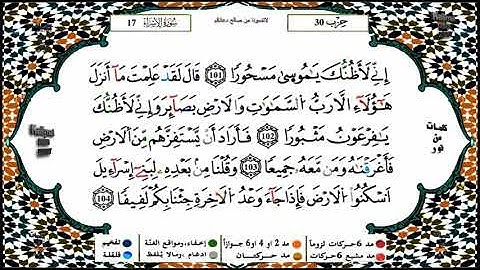 سُورَةُ الْإِسْرَاءِ 17
لاتنسونا من صالح دعائكم
حِزْب 30
إِنِّي لَأَظُنُّكَ يَٰمُوسَىٰ مَسْحُورًا 101 قَالَ لَقَدْ عَلِمْتَ مَا أَنزَلَ
هَٰؤُلَاءِ إِلَّا رَبُّ السَّمَٰوَٰتِ وَالْأَرْضِ بَصَائِرَ وَإِنِّي لَأَظُنُّكَ
يَٰفِرْعَوْنُ مَثْبُورًا 102 فَأَرَادَ أَنْ يَسْتَفِزَّهُم مِّنَ الْأَرْضِ
فَأَغْرَقْنَٰهُ وَمَن مَّعَهُ جَمِيعًا 103 وَقُلْنَا مِنْ بَعْدِهِ لِبَنِي إِسْرَائِيلَ
اسْكُنُوا الْأَرْضَ فَإِذَا جَاءَ وَعْدُ الْآخِرَةِ جِئْنَا بِكُمْ لَفِيفًا 104
كلمات
من
نور
مد 6 حركات لزوماً
مد 2 او 4 او 6 جوازاً
إخفاء، ومواقع الغنّة
تفخيم
مد مشبع 6 حركات
مد حركتان
ادغام، ومالا يلفظ
قلقلة